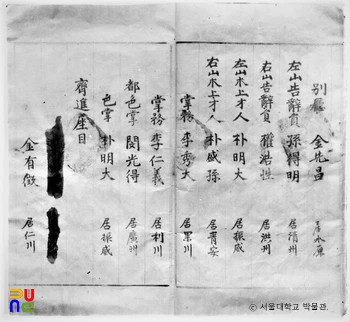 別廳 金兆昌 居水原
左山告辭員 孫得明 居清州
右山告辭員 權浩性 居洪州
左山木上才人 朴明大 居振威
右山木上才人 朴盛孫 居青安
掌務 李秀大 居黑川
掌務 李仁義 居利川
都色掌 閔光得 居廣州
色掌 朴明大 居振威
齊進座目
金有徵 居仁川
© 서울대학교 박물관.